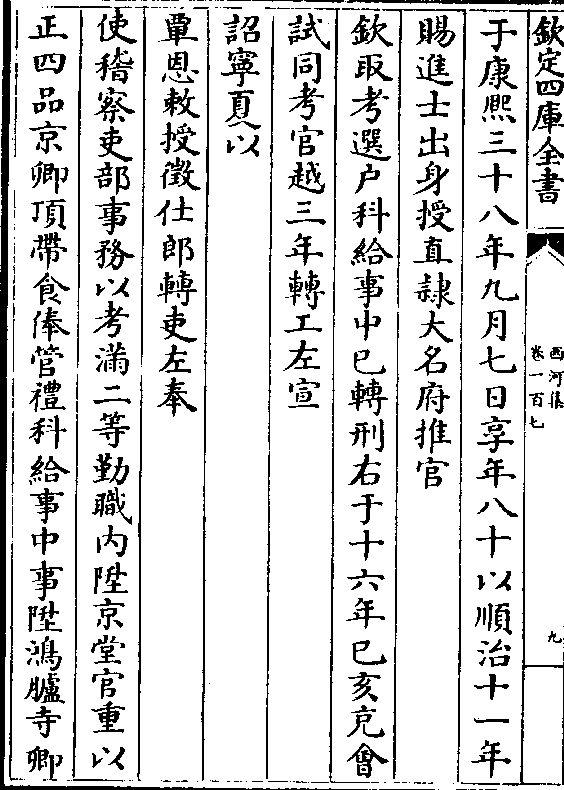 欽定四庫全書
西河集
卷一百七
九
于康熙三十八年九月七日享年八十以順治十一年
賜進士出身授直隷大名府推官
欽取考選户科給事中已轉刑右于十六年已亥充㑹
試同考官越三年轉工左宣
詔寧夏以
覃恩敕授徵仕郎轉吏左奉
使稽察吏部事務以考滿二等勤職内陞京堂官重以
正四品京卿頂帶食俸管禮科給事中事陞鴻臚寺卿